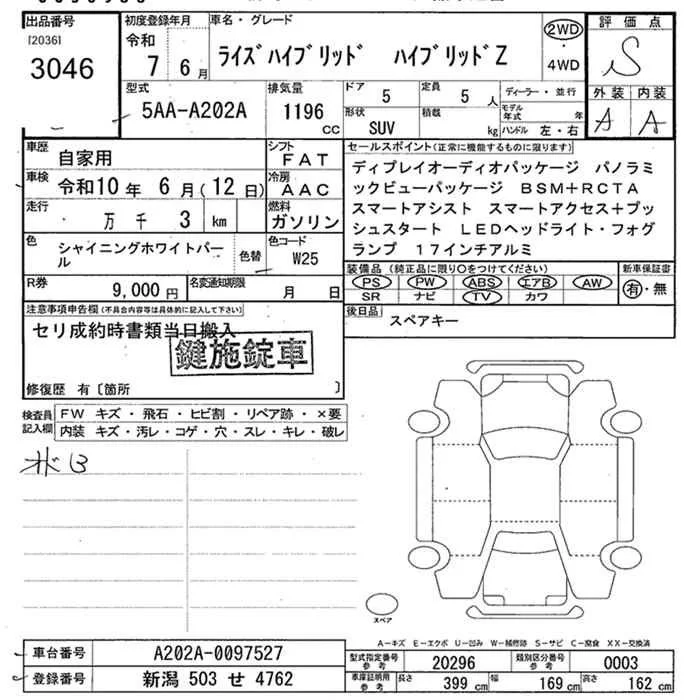 出品番号
[2036]
3046
初度登録年月
令和
7 6月
車名・グレード
ライズハイブリッド ハイブリッドZ
2WD
・
4WD
評価点
S
外装 内装
A A
型式
5AA-A202A
排気量
1196
CC
ドア
5
定員
5 人
形状
SUV
積載
kg
ディーラー・並行
モデル年式 年
ハンドル 左・右
車歴
自家用
シフト
FAT
車検
令和10年 6月(12日)
冷房
AAC
走行
万 千 3 km
燃料
ガソリン
色
シャイニングホワイトパール
色替
色コード
W25
R券
9,000 円
名変通知期限
月 日
セールスポイント(正常に機能するものに限ります)
ディプレイオーディオパッケージ パノラミ
ックビューパッケージ BSM+RCTA
スマートアシスト スマートアクセス+プッ
シュスタート LEDヘッドライト・フォグ
ランプ 17インチアルミ
装備品 (純正品に限り○をつけてください)
PS PW ABS エアB AW
SR ナビ TV カワ
新車保証書
有・無
後日品
スペアキー
注意事項申告欄(不具合内容等は具体的に記入して下さい)
セリ成約時書類当日搬入
鍵施錠車
修復歴 有〔箇所 〕
検査員記入欄
FW キズ・飛石・ヒビ割・リペア跡・×要
内装 キズ・汚レ・コゲ・穴・スレ・キレ・破レ
スペア
A-キズ E-エクボ U-凹み W-補修跡 S-サビ C-腐食 XX-交換済
車台番号
A202A-0097527
登録番号
新潟 503 せ 4762
型式指定番号
参考
20296
類別区分番号
参考
0003
車庫証明用
参考
長さ 399 cm
幅 169 cm
高さ 162 cm